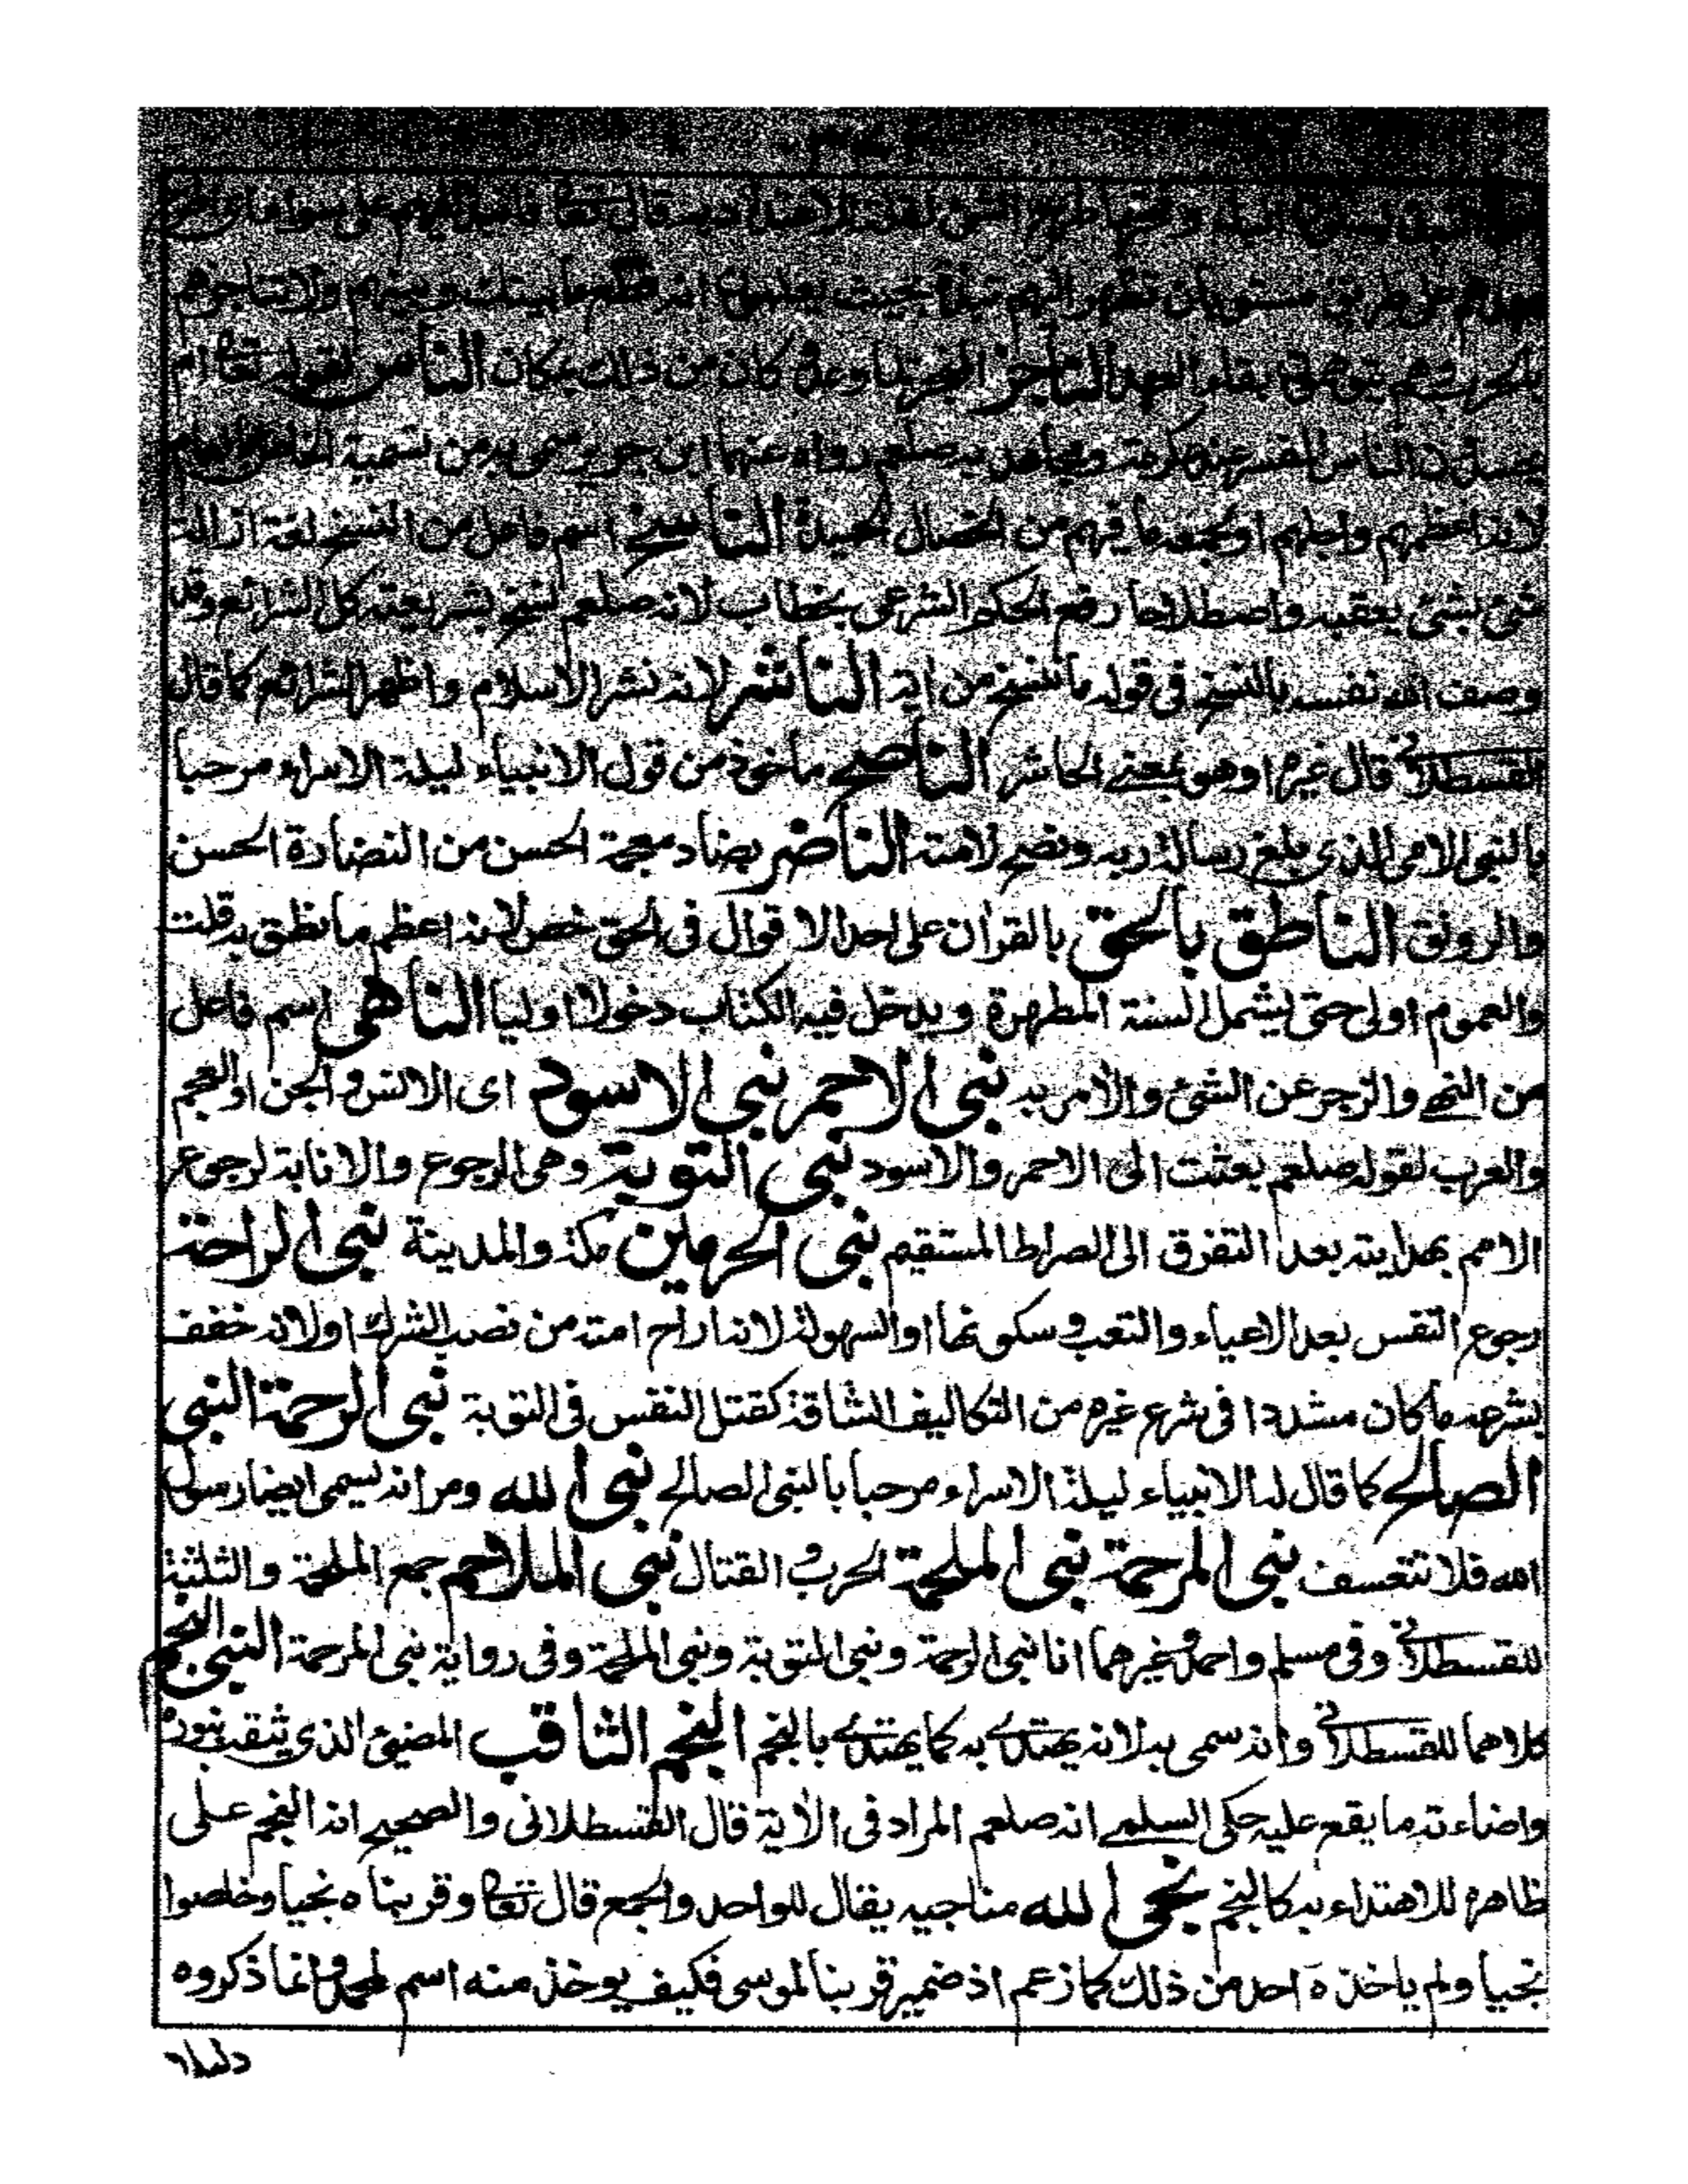 قال تعا فانبذ اليهم على سواء
على طريق مستو بان تظهر اليهم نبذه بحيث يعلمون انه قطع ما بينك وبينهم ولا تناجزهم
بالحرب وهم يتوهمون بقاء العهد الناجز المنجز لما وعده كان من ذلك بمكان الناس لقوله تعا ام
يحسدون الناس المفسر عند عكرمة ومجاهد به صلعم رواه عنهما ابن جرير سمى به من تسمية الخاص باسم العام
لانه اعظمهم واجلهم او لجمعه ما فيهم من الخصال الحميدة الناسخ اسم فاعل من النسخ لغة ازالة
شئ بشئ يعقبه واصطلاحا رفع الحكم الشرعى بخطاب لانه صلعم نسخ بشريعته كل الشرائع وقد
وصف الله نفسه بالنسخ فى قوله ما ننسخ من اية الناشر لانه نشر الاسلام واظهر الشرائع كما قال
القسطلانى قال غيره او هو بمعنى الحاشر الناصح ماخوذ من قول الانبياء ليلة الاسراء مرحبا
بالنبى الامى الذى بلغ رسالة ربه ونصح لامته الناضر بضاد معجمة الحسن من النضارة الحسن
والرونق الناطق بالحق بالقران على احد الاقوال فى الحق خص لانه اعظم ما نطق به قلت
والعموم اولى حتى يشمل السنة المطهرة ويدخل فيه الكتاب دخولا اوليا الناهى اسم فاعل
من النهى والزجر عن الشئ والامر به نبى الاحمر نبى الاسود اى الانس والجن او العجم
والعرب لقوله صلعم بعثت الى الاحمر والاسود نبى التوبة وهى الرجوع والانابة لرجوع
الامم بهدايته بعد التفرق الى الصراط المستقيم نبى الحرمين مكة والمدينة نبى الراحة
رجوع النفس بعد الاعياء والتعب وسكونها او السهولة لانه اراح امته من نصب الشرك او لانه خفف
بشرعه ما كان مشددا فى شرع غيره من التكاليف الشاقة كقتل النفس فى التوبة نبى الرحمة النبى
الصالح كما قال له الانبياء ليلة الاسراء مرحبا بالنبى الصالح نبى الله ومر انه يسمى ايضا رسول
الله فلا تتعسف نبى المرحمة نبى الملحمة الحرب و القتال نبى الملاحم جمع الملحمة والثلثة
للقسطلانى وفى مسلم واحمد وغيرهما انا نبى الرحمة ونبى التوبة ونبى الملحمة وفى رواية نبى المرحمة النبى النجم
كلاهما للقسطلانى وانه سمى به لانه يهتدى به كما يهتدى بالنجم النجم الثاقب المضيئ الذى يثقب بنوره
واضاءته ما يقع عليه حكى السلمى انه صلعم المراد فى الاية قال القسطلانى والصحيح انه النجم على
ظاهره للاهتداء به كالنجم نجى الله مناجيه يقال للواحد والجمع قال تعا وقربناه نجيا وخلصوا
نجيا ولم ياخذه احد من ذلك كما زعم اذ ضمير قربنا لموسى فكيف يوخذ منه اسم لمحمد وانما ذكروه
دليلا